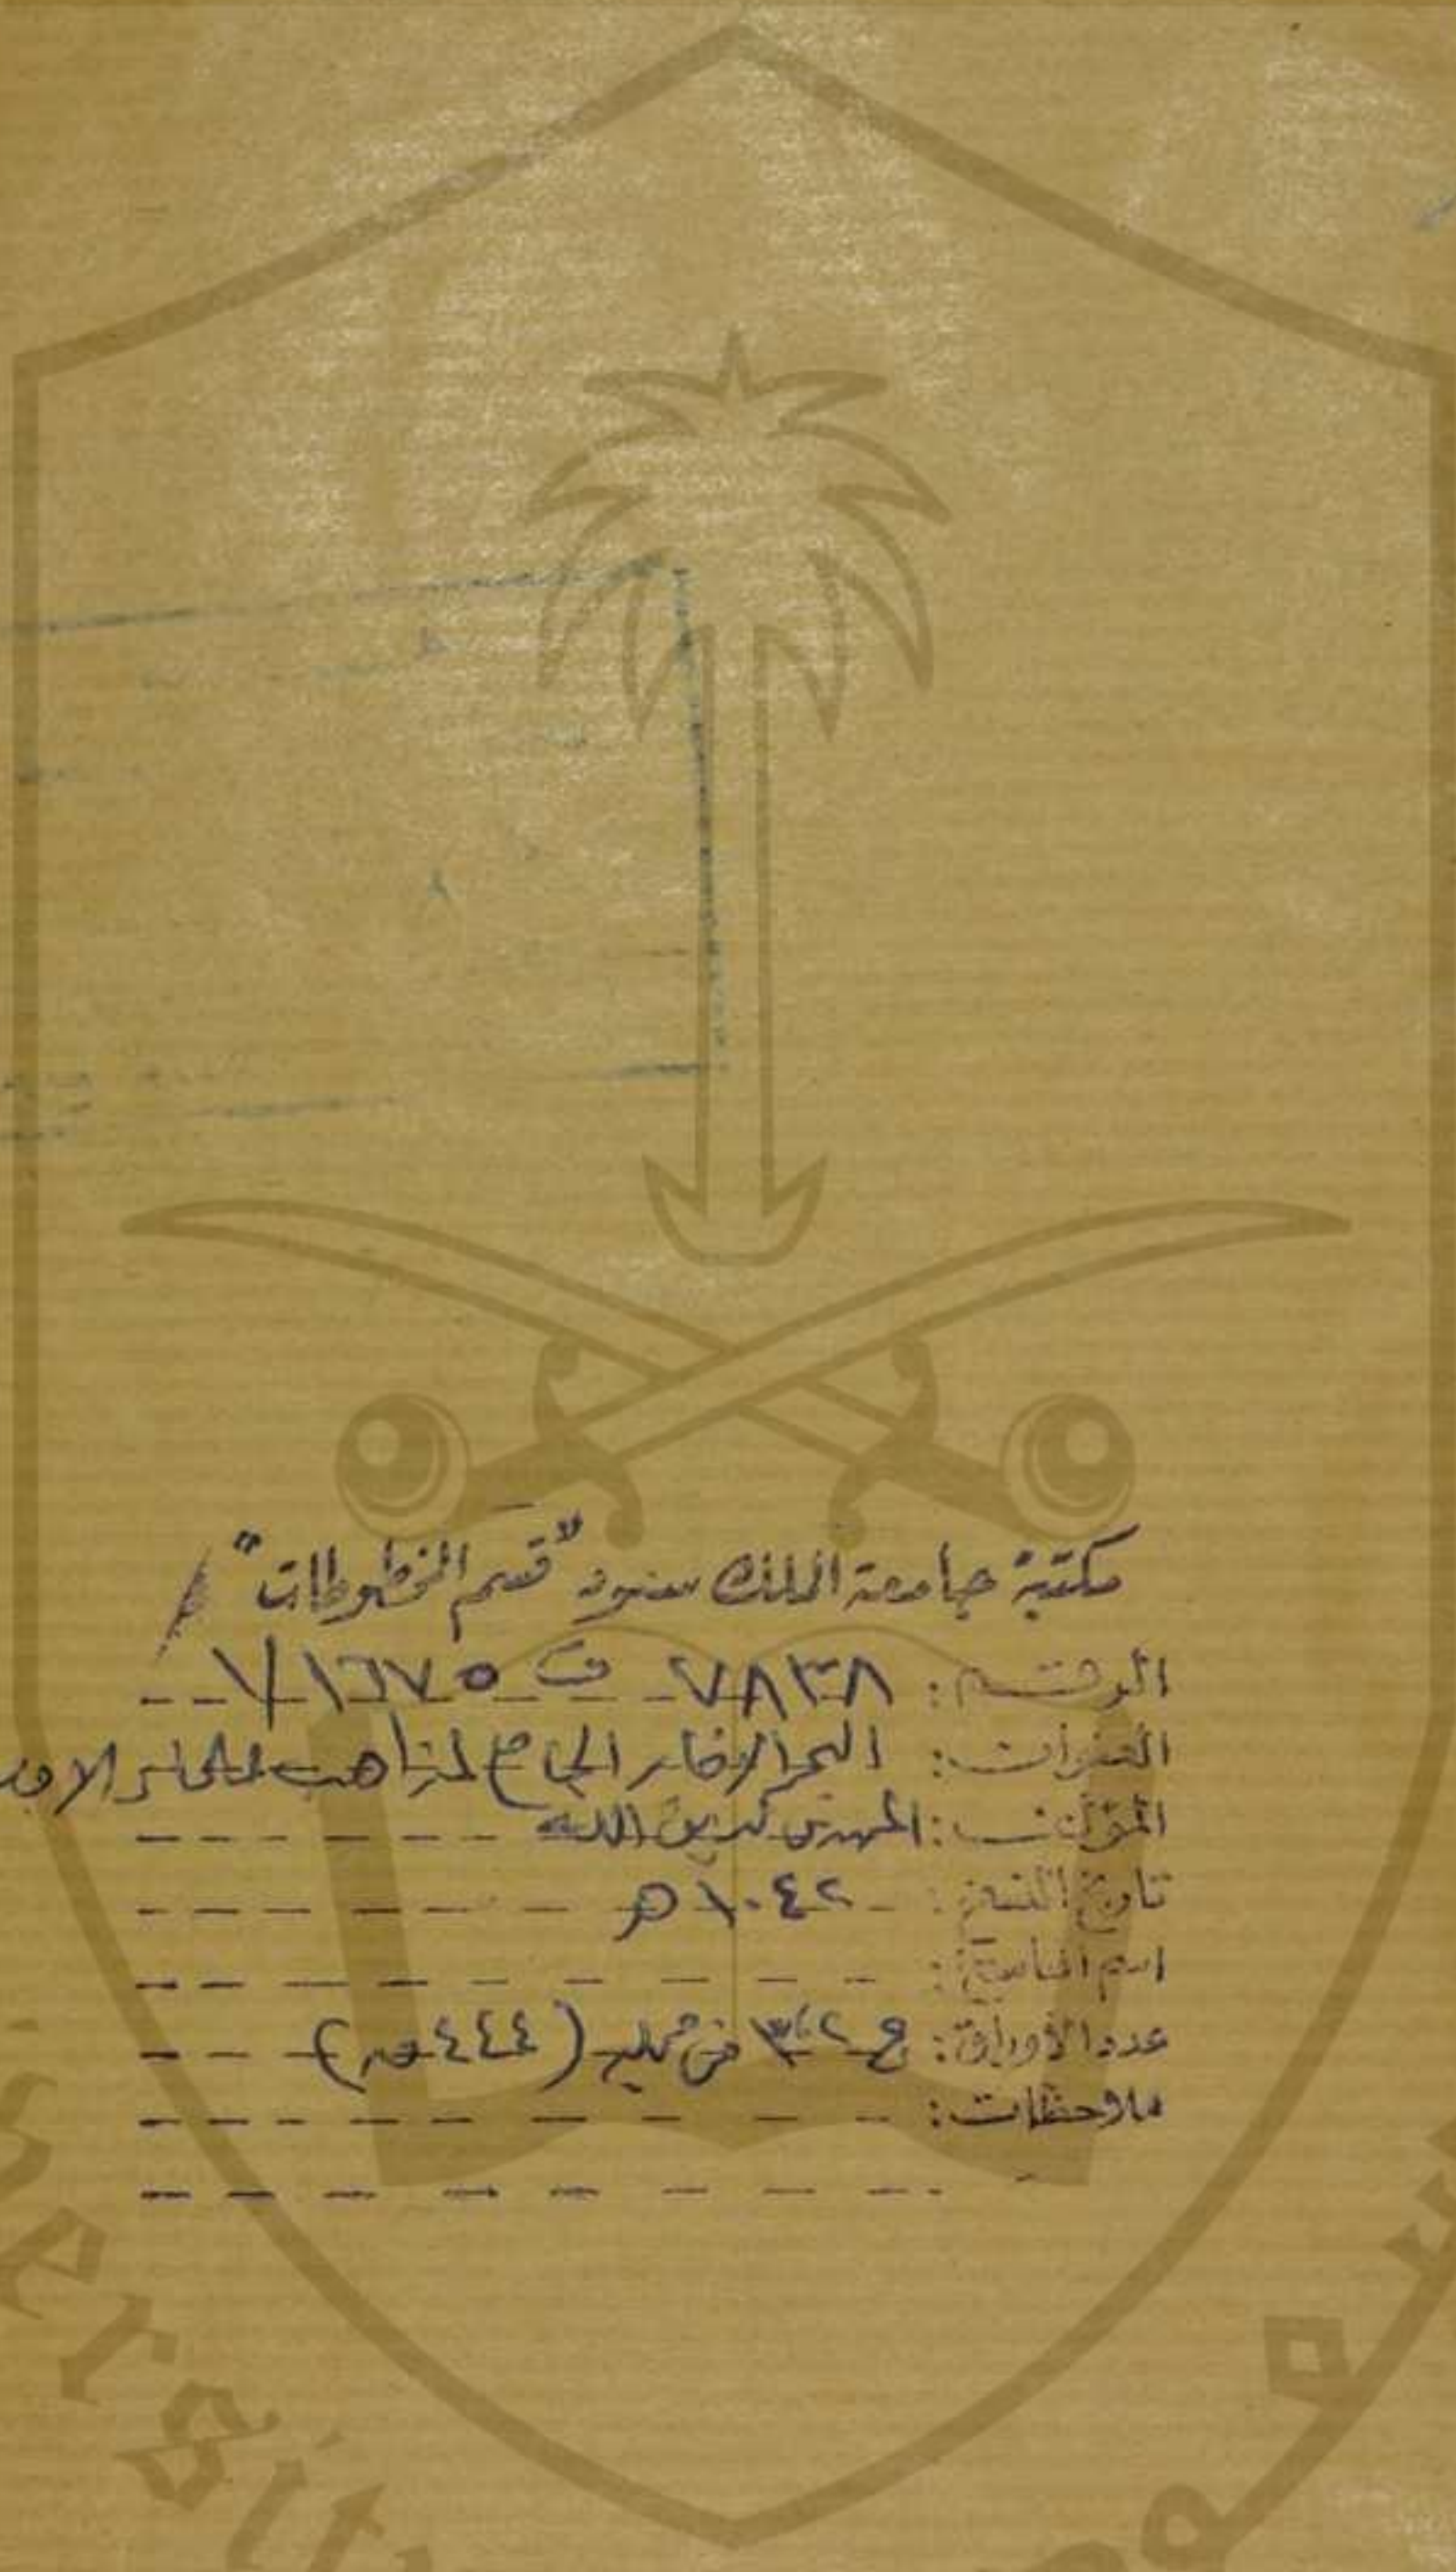 مكتبة جامعة الملك سعود "قسم المخطوطات"
الرقم: ٧٨٣٨ ف ١٦٧٥ / ٧
العنوان: البحر الزخار الجامع لمذاهب علماء الامصار
المؤلف: المهدي لدين الله
تاريخ النسخ: ١٠٤٢ هـ
اسم الناسخ:
عدد الأوراق: (٤٤٤
ملاحظات: